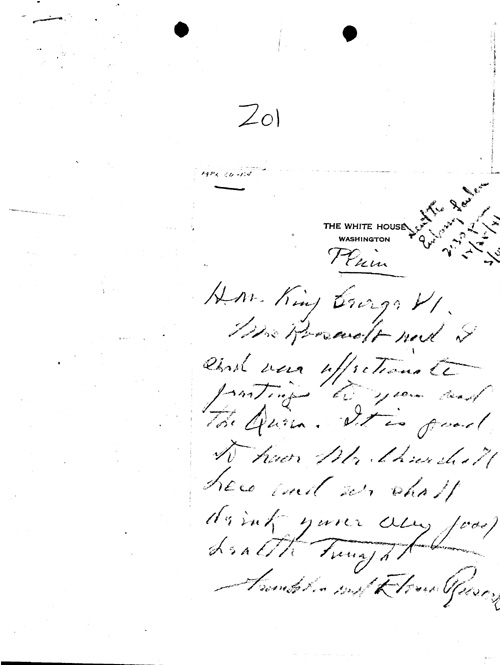 201
THE WHITE HOUSE
WASHINGTON
Plain
Sent to
Embassy London
2:30 pm
H.M. King George VI.
Mrs Roosevelt and I
send our affectionate
greetings to you and
the Queen. It is good
to have Mr. Churchill
here and we shall
drink your very good
health tonight
Franklin and Eleanor Roosevelt